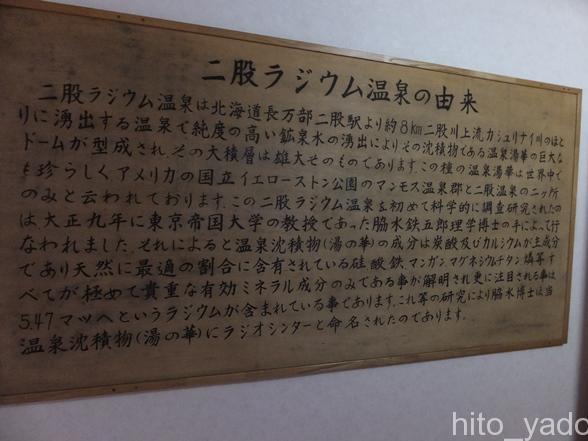 二股ラジウム温泉の由来
二股ラジウム温泉は北海道長万部二股駅より約8Km二股川上流カシュリナイ川のほと
りに湧出する温泉で純度の高い鉱泉水の湧出によりその沈積物である温泉湯華の巨大な
ドームが型成され、その大積層は雄大そのものであります。この種の温泉湯華は世界中で
も珍らしくアメリカの国立イエローストン公園のマンモス温泉郡と二股温泉の二ッ所
のみと云われております。この二股ラジウム温泉を初めて科学的に調査研究されたの
は大正九年に東京帝国大学の教授であった脇水鉄五郎理学博士の手によって行
なわれました。それによると温泉沈積物(湯の華)の成分は炭酸及びカルシウムが主成分
であり天然に最適の割合に含有されている硅酸、鉄、マンガン、マグネシウム、チタン、燐等す
べてが極めて貴重な有効ミネラル成分のみである事が解明され更に注目される事は
5.47マッヘというラジウムが含まれている事であります。これ等の研究により脇水博士は当
温泉沈積物(湯の華)にラジオシンターと命名されたのであります。
hito_yado